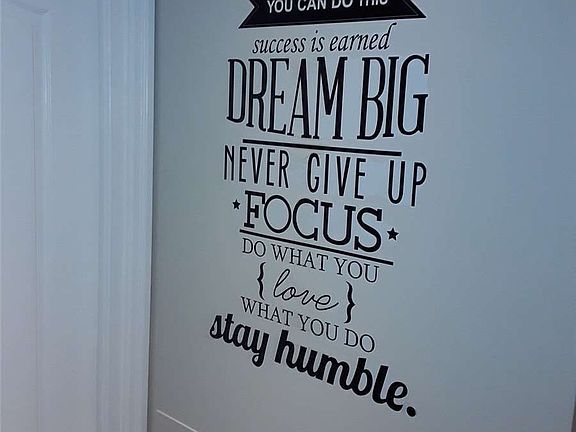 YOU CAN DO THIS
success is earned
DREAM BIG
NEVER GIVE UP
FOCUS
DO WHAT YOU
{love}
WHAT YOU DO
stay humble.